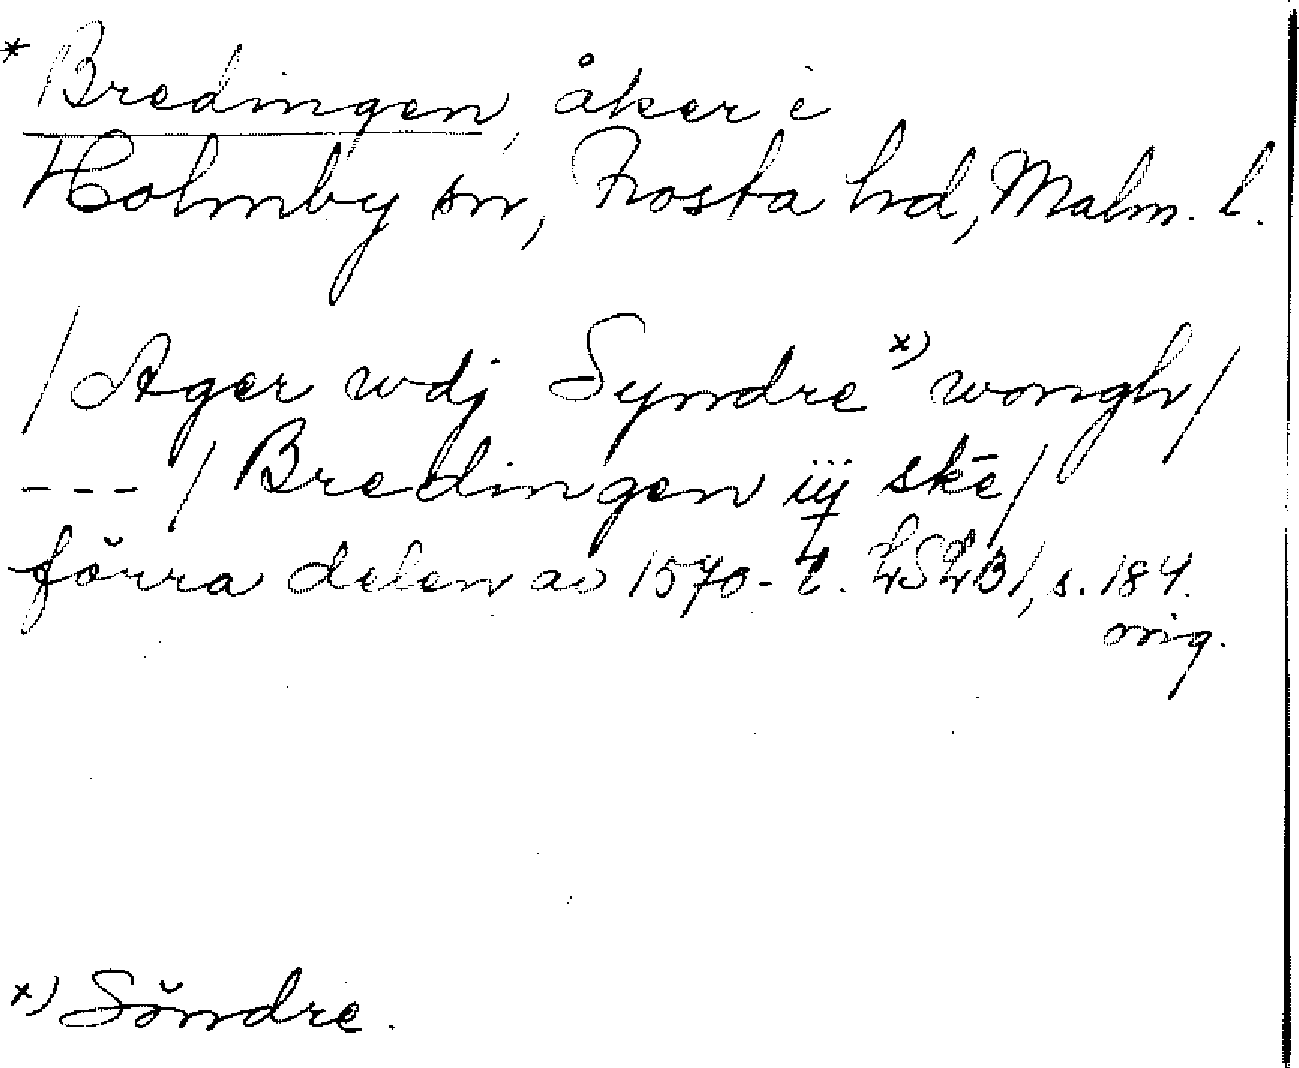 * Bredingen, åker i
Holmby sn, Frosta hd, Malm. l.
/Ager wdj Syndre x) wongh/
--- / Bredingen iij skē/
förra delen av 1570-t. LSLB1, s. 184.
orig.
x) Söndre.